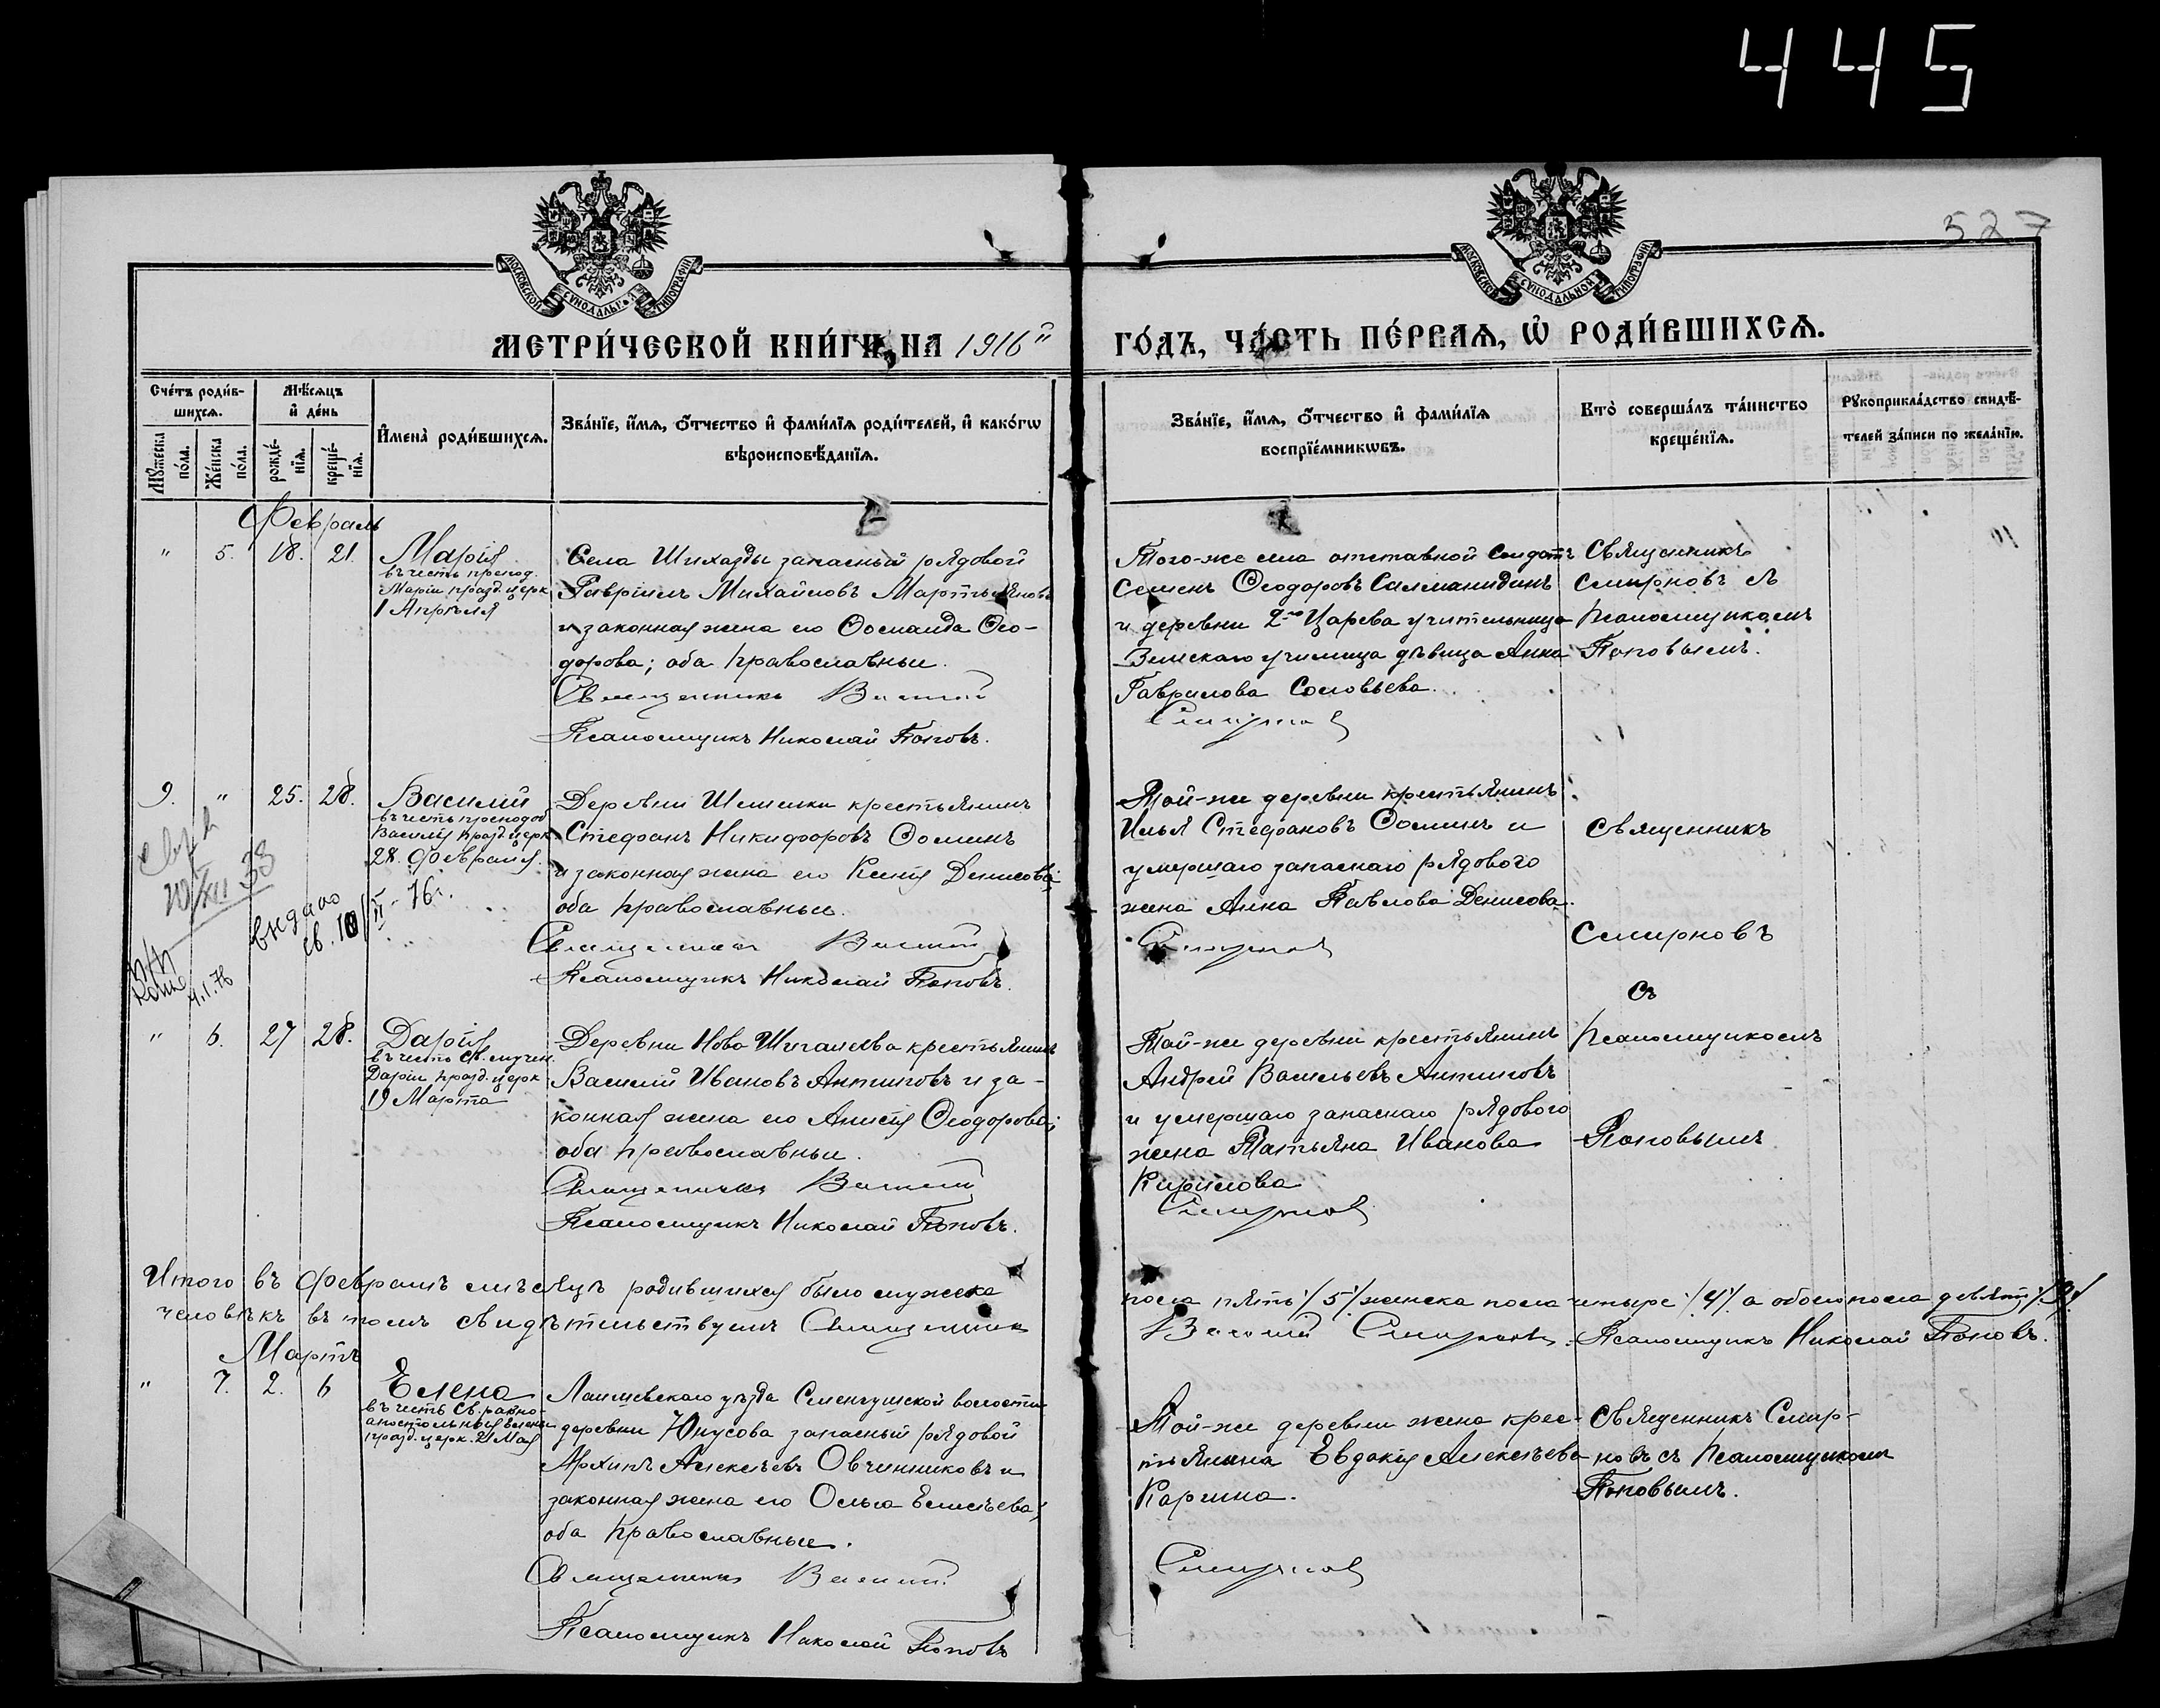 445
527
МОСКОВСКОЙ СѴНОДАЛЬНОЙ ТИПОГРАФІИ
МОСКОВСКОЙ СѴНОДАЛЬНОЙ ТИПОГРАФІИ
МЕТРИ́ЧЕСКОЙ КНИ́ГИ, НА 1916й ГО́ДЪ, ЧА́СТЬ ПЕ́РВАѦ, Ѡ҆ РОДИ́ВШИХСѦ.
Сче́тъ роди́в-
шихсѧ.
Мꙋ́жеска по́ла.
Же́нска по́ла.
Мѣ́сѧцъ
и҆ де́нь
рожде́-
нїѧ.
креще́-
нїѧ.
И҆мена̀ роди́вшихсѧ.
Зва́нїе, и҆́мѧ, ѻ҆́тчество и҆ фами́лїѧ роди́телей, и҆ како́гѡ
вѣроисповѣ́данїѧ.
Зва́нїе, и҆́мѧ, ѻ҆́тчество и҆ фами́лїѧ
воспрїе́мникѡвъ.
Кто̀ соверша́лъ та́инство
креще́нїѧ.
Рꙋкоприкла́дство свидѣ́-
телей за́писи по жела́нїю.
Февраль
" 5. 18. 21. Марія
въ честь препод.
Маріи празд. церк
1 Апрѣля
Села Шихазды запасный рядовой
Гавріилъ Михайловъ Мартьяновъ
и законная жена его Ѳеонаида Ѳео-
дорова; оба православные.
Священникъ Василій
Псаломщикъ Николай Поповъ.
Того-же села отставной солдатъ
Семенъ Ѳеодоровъ
и деревни 2-го Царева учительница
Земскаго училища дѣвица Анна
Гаврилова Соловьева.
Смирновъ
Священникъ
Смирновъ съ
Псаломщикомъ
Поповымъ.
9. " 25. 28. Василій
въ честь преподоб
Василія празд. церк
28. Февраля.
Деревни Шемелки крестьянинъ
Стефанъ Никифоровъ Ѳоминъ
и законная жена его Ксенія Денисова;
оба православные.
Священникъ Василій
Псаломщикъ Николай Поповъ.
Той-же деревни крестьянинъ
Илья Стефановъ Ѳоминъ и
умершаго запаснаго рядового
жена Анна Павлова Денисова.
Смирновъ
Священникъ
Смирновъ
съ
Псаломщикомъ
Поповымъ
XII 38
выдано
св. 10/II-76г.
4.1.76
" 6. 27 28. Дарія
въ честь Св. мучен.
Даріи празд. церк
19 Марта
Деревни Ново Шигалеева крестьянинъ
Василій Ивановъ Антиповъ и за-
конная жена его Анисія Ѳеодорова;
оба православные.
Священникъ Василій
Псаломщикъ Николай Поповъ.
Той-же деревни крестьянинъ
Андрей Васильевъ Антиповъ
и умершаго запаснаго рядового
жена Татьяна Иванова
Кирилова
Смирновъ
Итого въ Февралѣ мѣсяцѣ родившихся было мужеска пола пять /5/ женска пола четыре /4/ а обоего пола девять /9/
человѣкъ въ томъ свидѣтельствуемъ Священникъ Василій Смирновъ. Псаломщикъ Николай Поповъ.
Мартъ
" 7. 2. 6 Елена
въ честь Св. равно-
апостольныя Елены
празд. церк. 21 Мая
Лаишевскаго уѣзда волости
деревни Юнусова запасный рядовой
Архипъ Алексѣевъ Овчинниковъ и
законная жена его Ольга Елисѣева;
оба православные.
Священникъ Василій
Псаломщикъ Николай Поповъ
Той-же деревни жена крес-
тьянина Евдокія Алексѣева
Каргина.
Смирновъ
Священникъ Смир-
новъ съ Псаломщикомъ
Поповымъ.